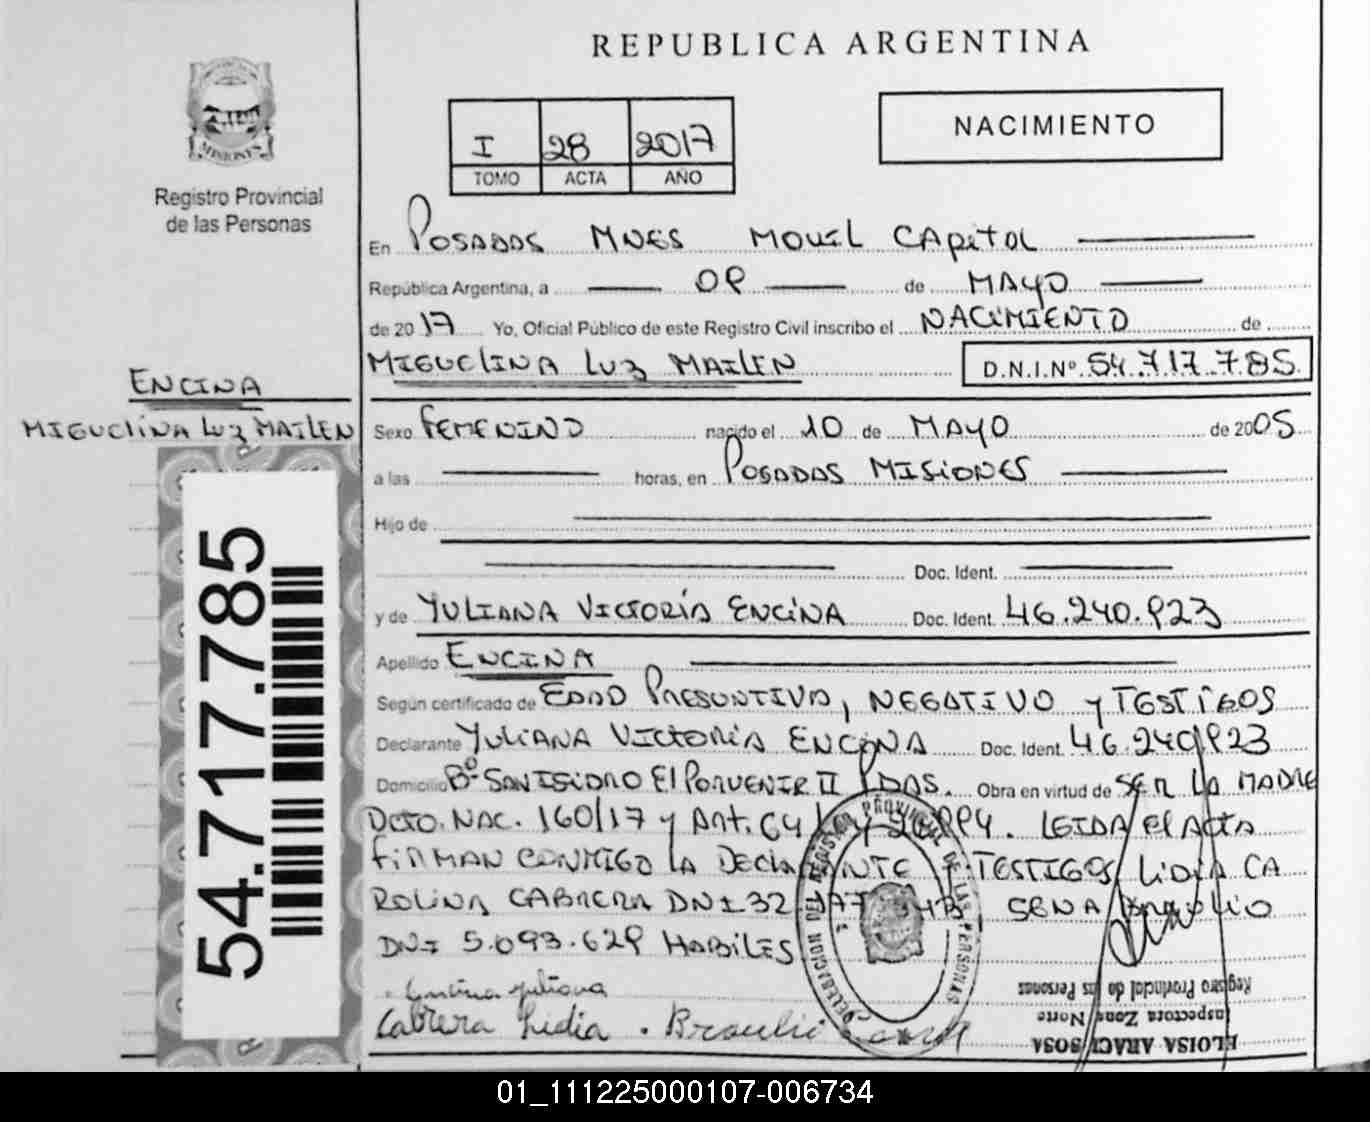 REPUBLICA ARGENTINA
MISIONES
Registro Provincial
de las Personas
I 28 2017
TOMO ACTA AÑO
NACIMIENTO
En POSADAS MNES MOVIL CAPITAL
República Argentina, a 09 de MAYO
de 2017 Yo, Oficial Público de este Registro Civil inscribo el NACIMIENTO de
MIGUELINA LUZ MAILEN D.N.I.Nº 54.717.785
ENCINA
MIGUELINA LUZ MAILEN
Sexo FEMENINO nacido el 10 de MAYO de 2005
a las horas, en POSADAS MISIONES
Hijo de
Doc. Ident.
y de YULIANA VICTORIA ENCINA Doc. Ident. 46.240.923
Apellido ENCINA
Según certificado de EDAD PRESUNTIVA, NEGATIVO y TESTIGOS
Declarante YULIANA VICTORIA ENCINA Doc. Ident. 46.240.923
Domicilio Bº SAN ISIDRO El PORVENIR II PDAS. Obra en virtud de SER LA MADRE
DCTO. NAC. 160/17 y ART. 64 LEIDA El ACTA
FIRMAN CONMIGO LA DECLARANTE y TESTIGOS LIDIA CA
ROLINA CABRERA DNI 32 SENA BRAULIO
DNI 5.093.629 HABILES
Encina Yuliana
Cabrera Lidia . Braulio
DELEGACION DEL REGISTRO PROVINCIAL DE LAS PERSONAS
ELOISA ARACI SOSA
Inspectora Zona Norte
Registro Provincial de las Personas
54.717.785
01_111225000107-006734